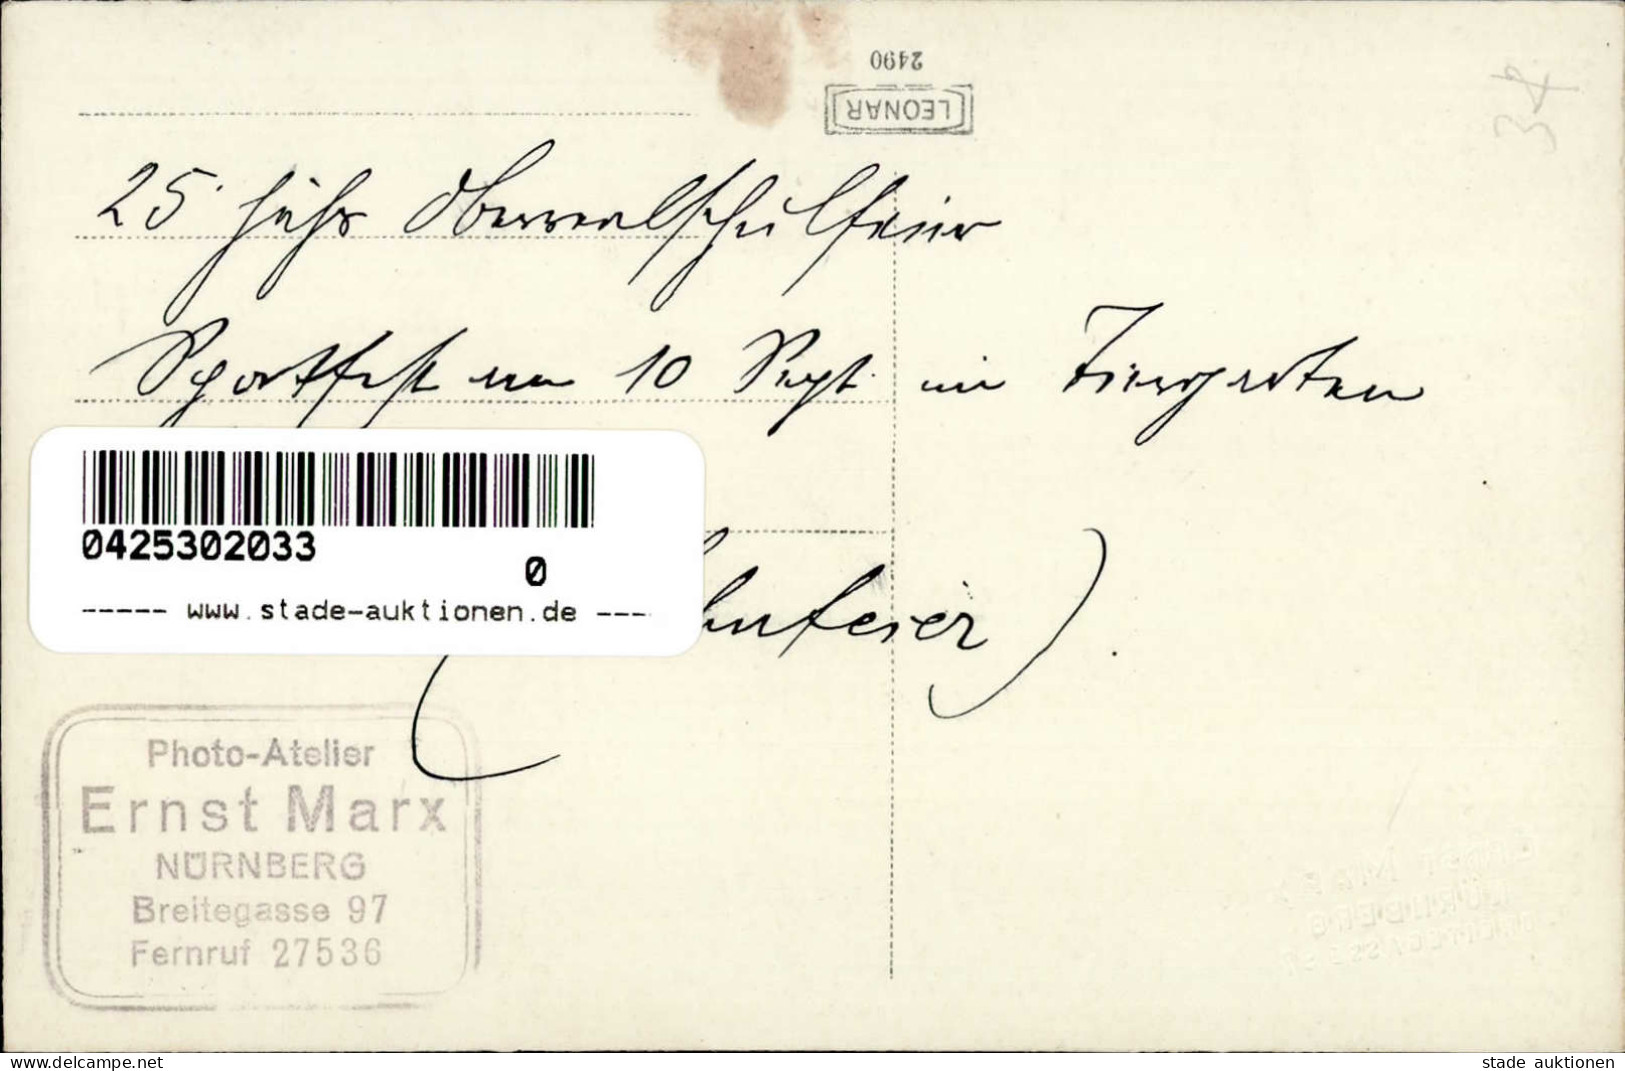 2490
LEONAR
34
25 jähr Oberrealschulfeier
Sportfest am 10 Sept. im Tiergarten
feier).
0425302033
0
----- www.stade-auktionen.de ----
Photo-Atelier
Ernst Marx
NÜRNBERG
Breitegasse 97
Fernruf 27536
ERNST MARX
NÜRNBERG
BREITEGASSE 97
www.delcampe.net
stade auktionen